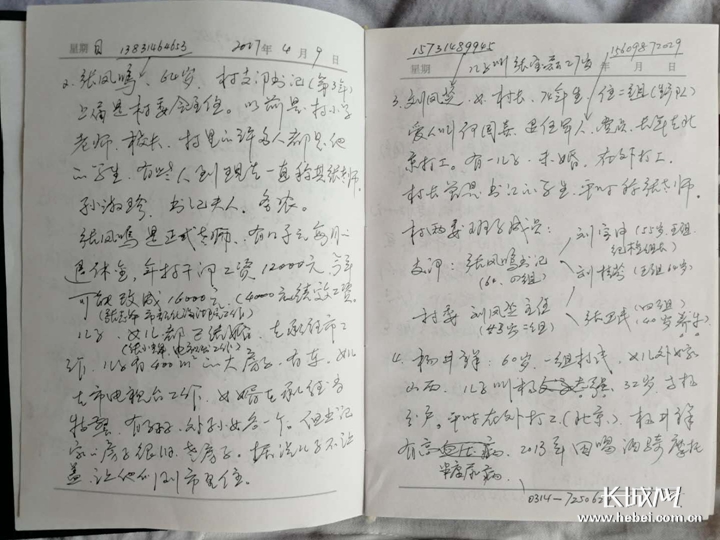 星期 日 13831464653 2017年 4月 9日
2. 张凤鸣、64岁、村支部书记(第3年)
上届是村委会主任。以前是村小学
老师、校长、村里的许多人都是他
的学生、有些人到现在一直称其张老师。
书记夫人、务农。
张凤鸣是正式老师、有 每月
退休金,年村干部工资12000元 今年
可能改成16000元、(4000元绩效工资)
儿子、女儿都已结婚、在承德市工
作、儿子有400㎡的大房子、有车。女儿
在市电视台工作、女婿在承德
特警、有 孙女各一个。但书记
家的房子很旧、老房子。 说儿子不让
盖、让他们到市里住。
15731489945 15609872029
星期 年 月 日
儿子叫张 27岁
3. 刘凤芝、女、村长、76年生、住二组(生产队)
爱人叫 国 、退伍军人、党员、去年在北
京打工。有一儿子、未婚、在外打工。
村长曾是书记的学生、平时称张老师。
村两委班子成员:
支部: 张凤鸣书记 刘 (55岁、五组 纪检组长)
(60. 四组) 刘 (五组 60岁)
村委 刘凤芝主任 张卫民(四组)
(43岁 二组) (40岁 养牛)
4. 杨井祥: 60岁、一组村民、女儿外嫁
山西、儿子叫杨 32岁、
分户。平时在外打工(北京)、杨井祥
有高血压病 2013年因喝酒骑摩托
糖尿病、
0314-725062
长城网
www.hebei.com.cn